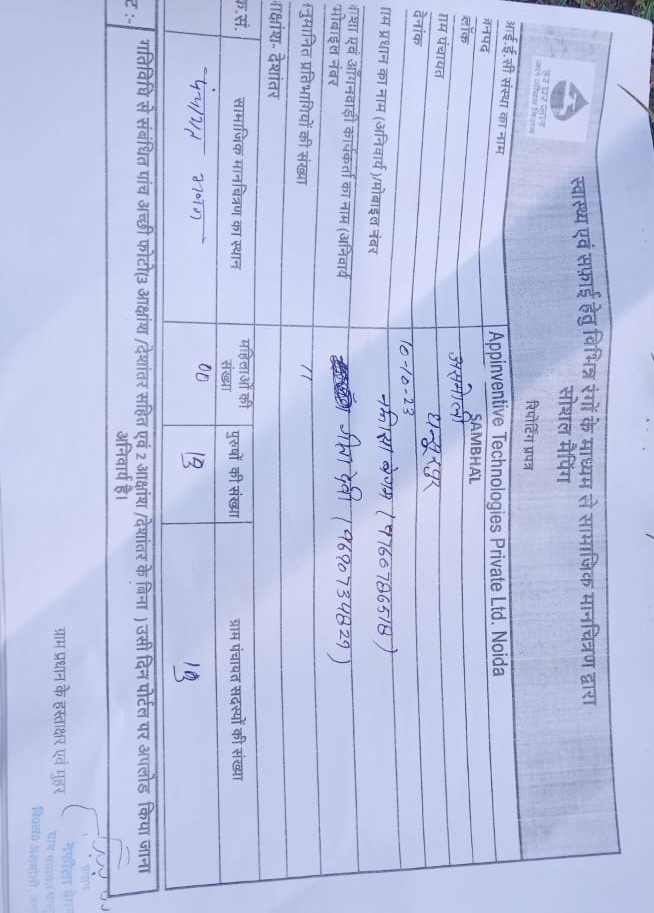 हर घर जल
जल जीवन मिशन
स्वास्थ्य एवं सफाई हेतु विभिन्न रंगों के माध्यम से सामाजिक मानचित्रण द्वारा
सोशल मैपिंग
रिपोर्टिंग प्रपत्र
आई.ई.सी संस्था का नाम Appinventive Technologies Private Ltd. Noida
जनपद SAMBHAL
लॉक असमोली
ग्राम पंचायत
देनांक 10-10-23
ग्राम प्रधान का नाम (अनिवार्य)/मोबाइल नंबर बेगम (9760786518)
एवं आँगनवाड़ी कार्यकर्ता का नाम (अनिवार्य देवी (9690734829)
मोबाइल नंबर
नुमानित प्रतिभागियों की संख्या 11
क्षांश- देशांतर
क्र.सं. सामाजिक मानचित्रण का स्थान महिलाओं की संख्या पुरुषों की संख्या ग्राम पंचायत सदस्यों की संख्या
पंचायत 00 13 13
ट :- गतिविधि से संबंधित पांच अच्छी फोटो(3 आक्षांश /देशांतर सहित एवं 2 आक्षांश /देशांतर के बिना ) उसी दिन पोर्टल पर अपलोड किया जाना
अनिवार्य है।
ग्राम प्रधान के हस्ताक्षर एवं मुहर